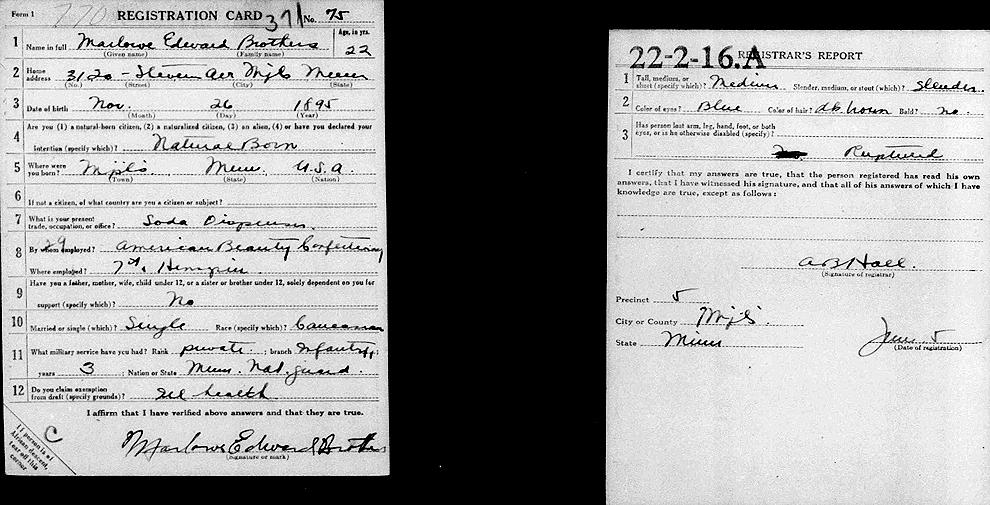 Form 1 770 REGISTRATION CARD 371 No. 75
1 Name in full Marlowe Edward Brothers Age, in yrs. 22
(Given name) (Family name)
2 Home address 3120 - Stevens Ave Mpls Minn
(No.) (Street) (City) (State)
3 Date of birth Nov. 26 1895
(Month) (Day) (Year)
4 Are you (1) a natural-born citizen, (2) a naturalized citizen, (3) an alien, (4) or have you declared your
intention (specify which)? Natural Born
5 Where were you born? Mpls Minn. U.S.A.
(Town) (State) (Nation)
6 If not a citizen, of what country are you a citizen or subject?
7 What is your present trade, occupation, or office? Soda Dispenser
8 By whom employed? American Beauty Confectionery
29
Where employed? 7th. Hennepin
9 Have you a father, mother, wife, child under 12, or a sister or brother under 12, solely dependent on you for
support (specify which)? No
10 Married or single (which)? Single Race (specify which)? Caucasian
11 What military service have you had? Rank private ; branch Infantry ;
years 3 ; Nation or State Minn. Nat. guard.
12 Do you claim exemption from draft (specify grounds)? Ill health
I affirm that I have verified above answers and that they are true.
C
Marlowe Edward Brothers
(Signature or mark)
If person is of
African descent,
tear off this
corner
22-2-16.A REGISTRAR'S REPORT
1 Tall, medium, or short (specify which)? Medium Slender, medium, or stout (which)? Slender
2 Color of eyes? Blue Color of hair? dk. brown Bald? no.
3 Has person lost arm, leg, hand, foot, or both
eyes, or is he otherwise disabled (specify)?
Ruptured
I certify that my answers are true, that the person registered has read his own
answers, that I have witnessed his signature, and that all of his answers of which I have
knowledge are true, except as follows:
A B Hall.
(Signature of registrar)
Precinct 5
City or County Mpls.
State Minn
June 5
(Date of registration)